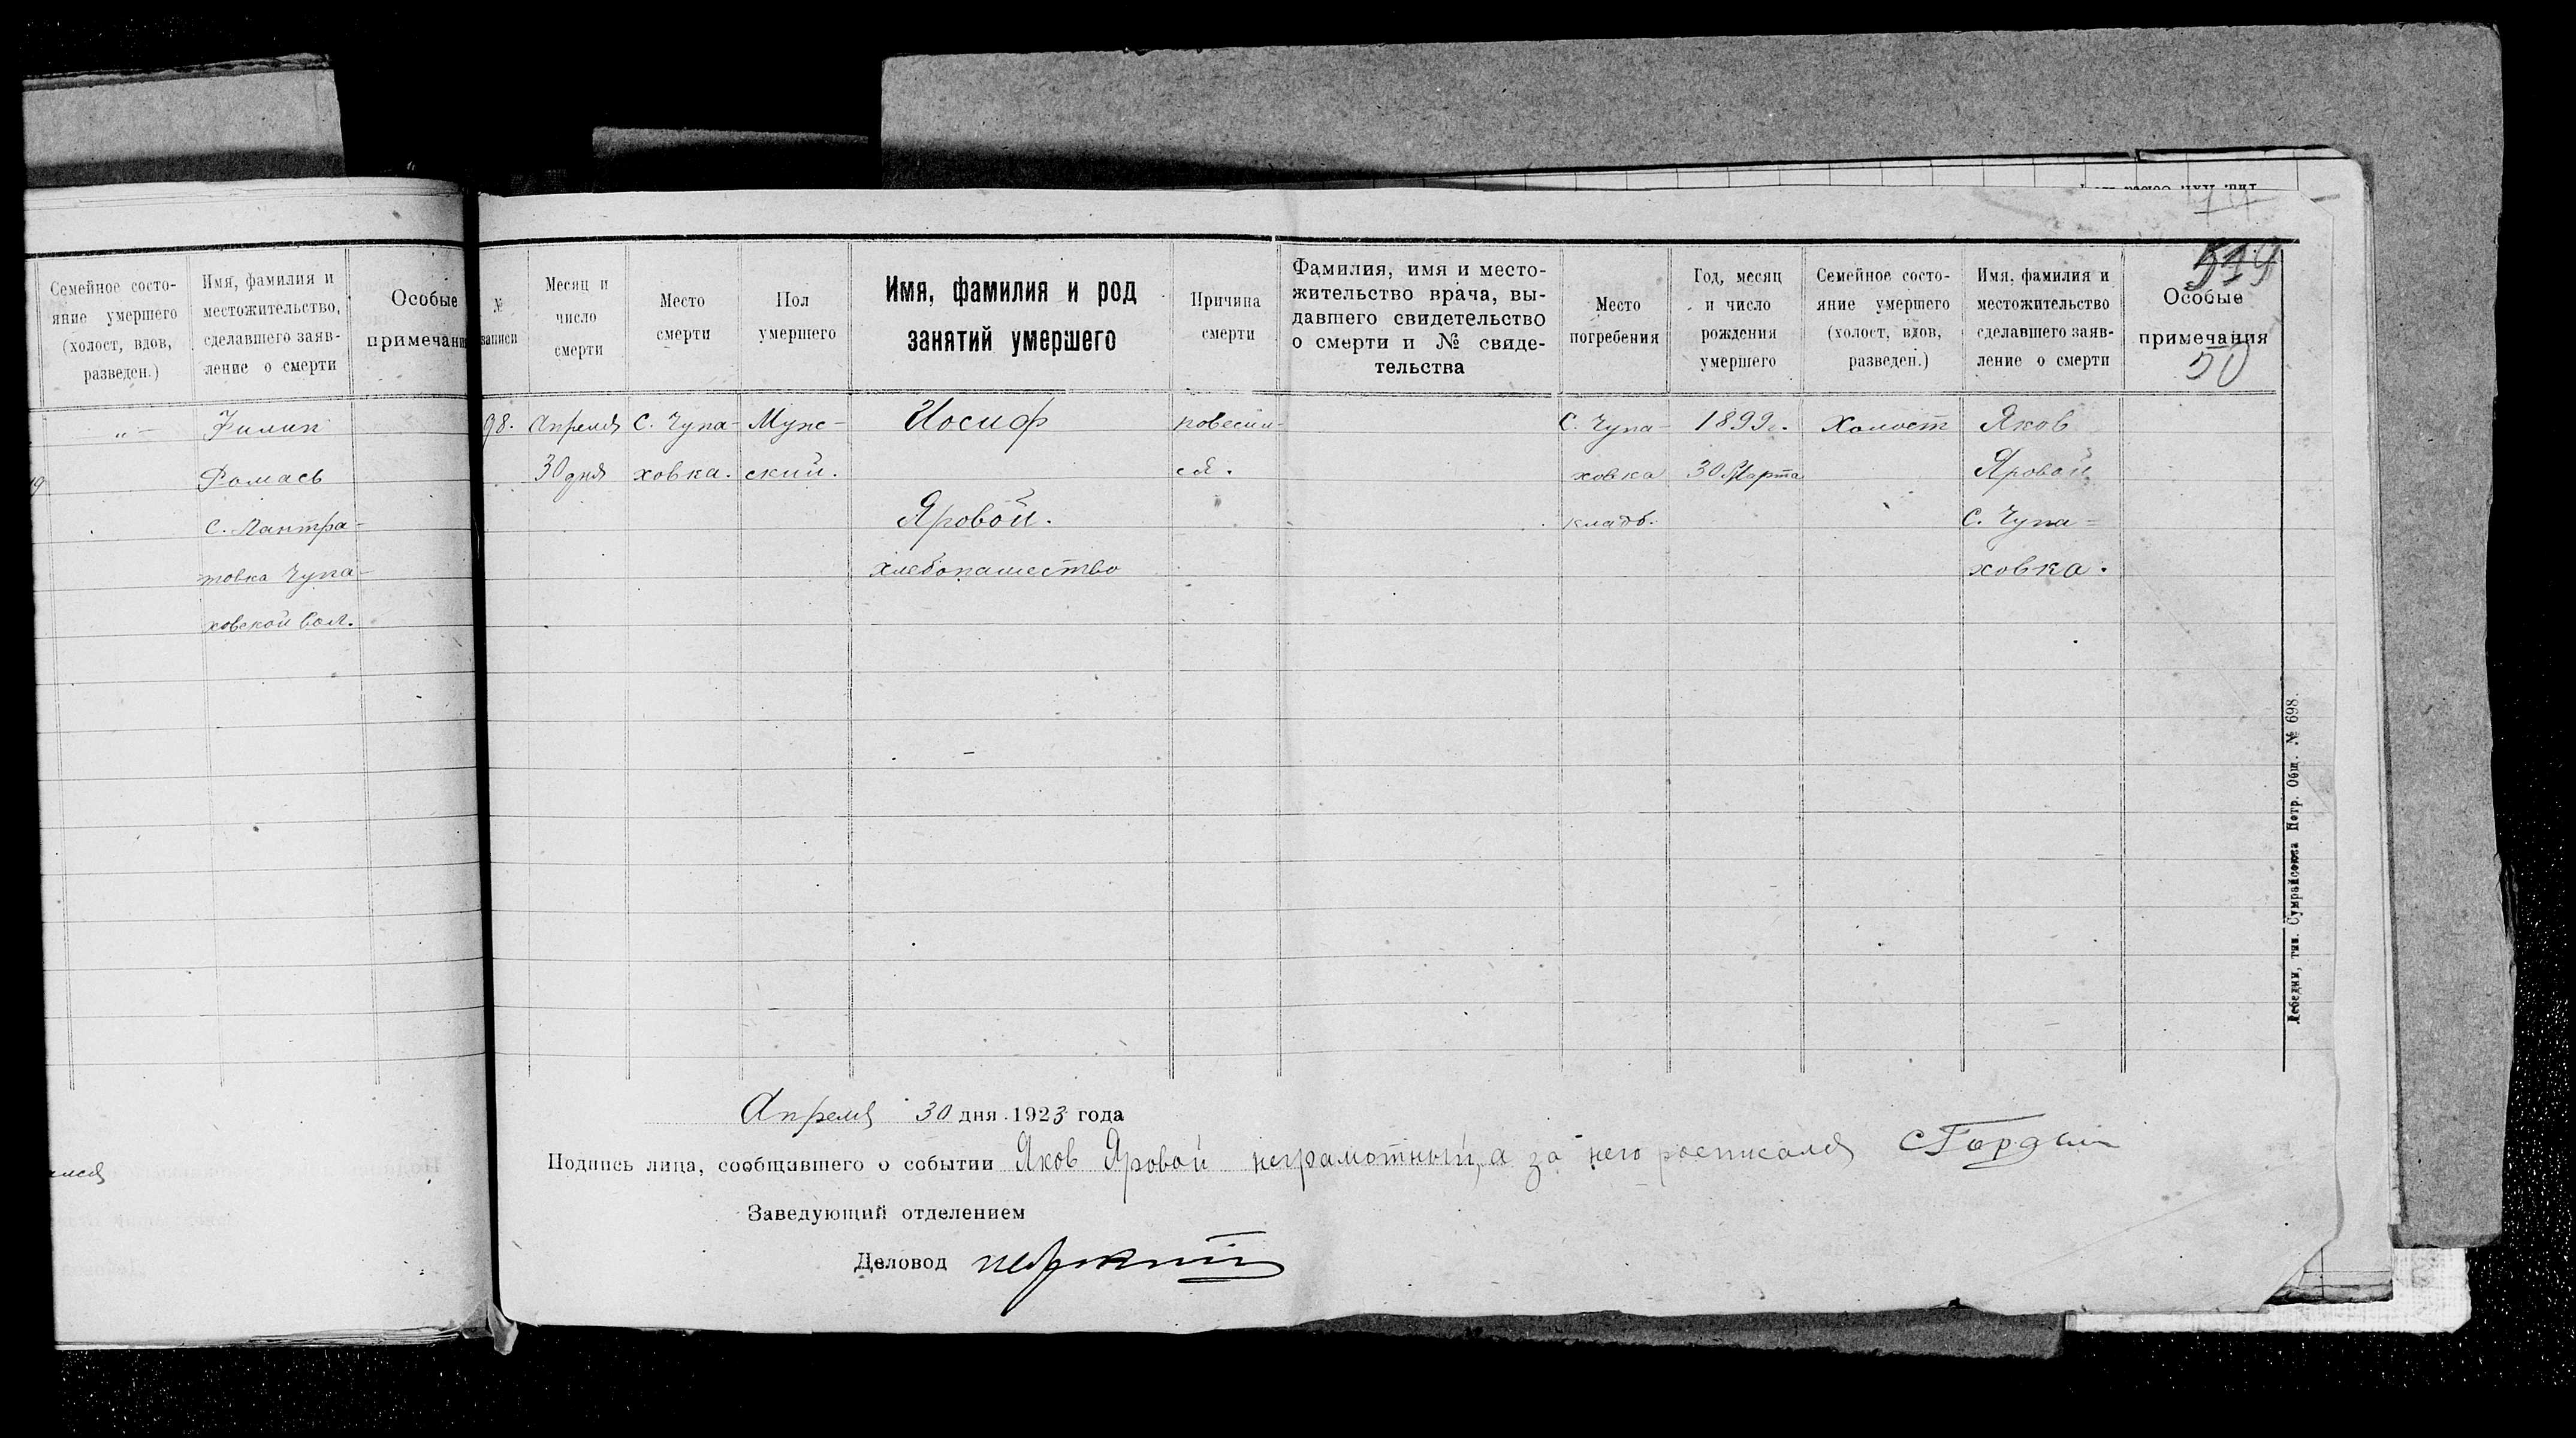 Семейное состо-
яние умершего
(холост, вдов,
разведен.)
Имя, фамилия и
местожительство,
сделавшего заяв-
ление о смерти
Особые
примечани
„ —
Филип
Ромась
с. Пантра-
товка Чупа-
ховской вол.
№
записи
Месяц и
число
смерти
Место
смерти
Пол
умершего
Имя, фамилия и род
занятий умершего
Причина
смерти
Фамилия, имя и место-
жительство врача, вы-
давшего свидетельство
о смерти и № свиде-
тельства
Место
погребения
Год, месяц
и число
рождения
умершего
Семейное состо-
яние умершего
(холост, вдов,
разведен.)
Имя, фамилия и
местожительство
сделавшего заяв-
ление о смерти
Особые
примечания
519
50
98.
Апреля
30 дня
С. Чупа-
ховка.
Мужс-
ский.
Иосиф
Яровой.
хлебопашество
повесил-
ся.
С. Чупа-
ховка
кладб.
1899г.
30 Марта
Холост
Яков
Яровой
С. Чупа-
ховка.
Апреля 30 дня 1923 года
Подпись лица, сообщившего о событии Яков Яровой неграмотный, а за него росписался
Заведующий отделением
Деловод
Лебедин, тип. Сумрайсоюза Потр. Общ. № 698.